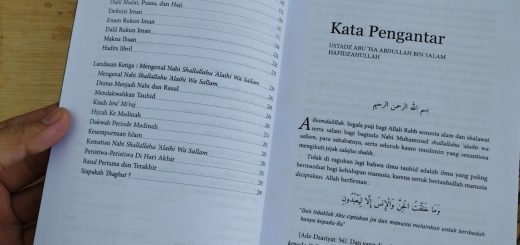 Dalil Shalat, Puasa, dan Haji
Definisi Iman
Enam Rukun Iman
Dalil Rukun Iman
Makna Ihsan
Hadits Jibril
Landasan Ketiga : Mengenal Nabi Shallallahu 'Alaihi Wa Sallam
Mengenal Nabi Shallallahu 'Alaihi Wa Sallam
Diutus Menjadi Nabi dan Rasul
Mendakwahkan Tauhid
Kisah Isra' Mi'raj
Hijrah Ke Madinah
Dakwah Periode Madinah
Kesempurnaan Islam
Kematian Nabi Shallallahu 'Alaihi Wa Sallam
Peristiwa-Peristiwa Di Hari Akhir
Rasul Pertama dan Terakhir
Siapakah Thaghut ?
Kata Pengantar
USTADZ ABU 'ISA ABDULLAH BIN SALAM
HAFIDZAHULLAH
بسم الله الرحمن الرحيم
Alhamdulillah. Segala puji bagi Allah Rabb semesta alam dan shalawat
serta salam bagi baginda Nabi Muhammad shallallahu 'alaihi wa
sallam, para sahabatnya, serta seluruh kaum muslimin, yang senantiasa
mengikuti jejak salafus shalih.
Tidak di ragukan lagi bahwa ilmu tauhid adalah ilmu yang paling
bermanfaat bagi kehidupan manusia, karena untuk bertauhidlah manusia
diciptakan. Allah berfirman :
وَمَا خَلَقْتُ الْجِنَّ وَالْإِنْسَ إِلَّا لِيَعْبُدُونِ
"Dan tidaklah Aku ciptakan jin dan manusia melainkan untuk beribadah
hanya kepada-Ku"
(Adz-Dzariyat: 56). Dan